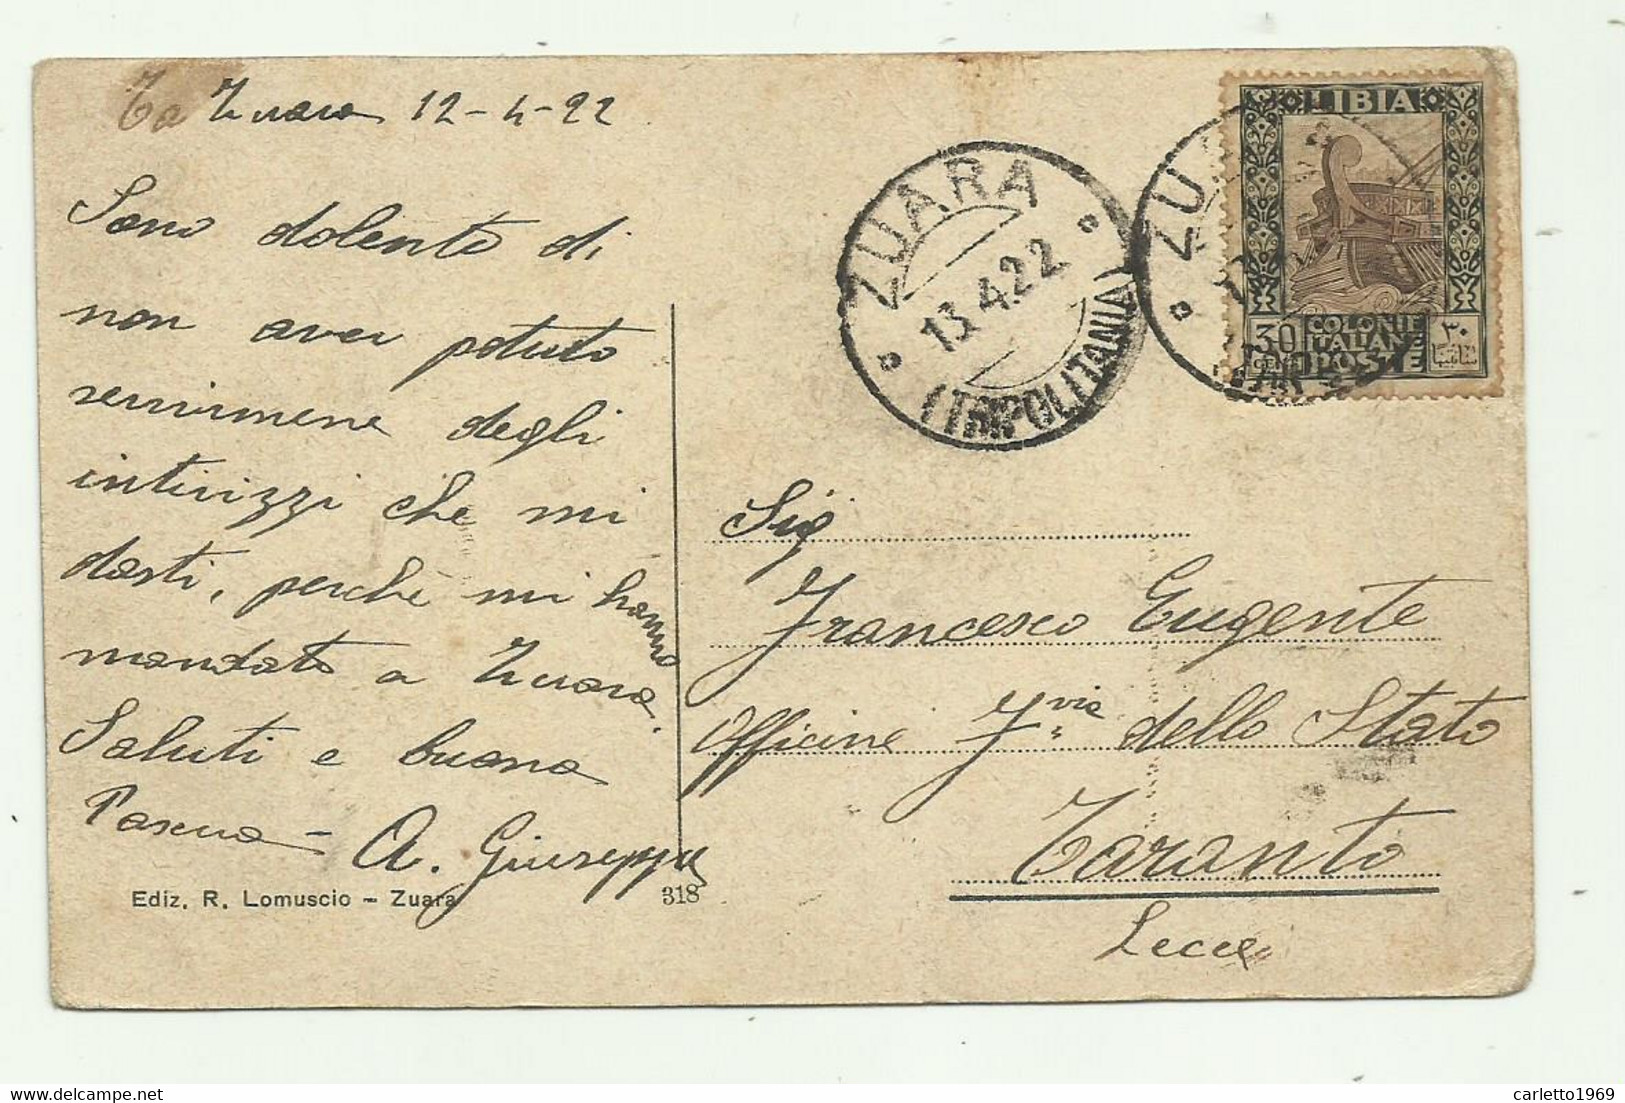 Zuara 12-4-22
Sono dolente di
non aver potuto
servirmene degli
intirizzi che mi
dasti, perchè mi hanno
mandato a Zuara.
Saluti e buona
Pascua - A. Giuseppe
Ediz. R. Lomuscio - Zuara
318
ZUARA
13.4.22
(TRIPOLITANIA)
ZU
LIBIA
30
CENT
COLONIE
ITALIANE
POSTE
٣٠
Sig
Francesco Eugente
Officine F.vie dello Stato
Taranto
Lecce
carletto1969